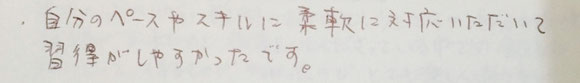 ・自分のペースやスキルに柔軟に対応いただいて
習得がしやすかったです。